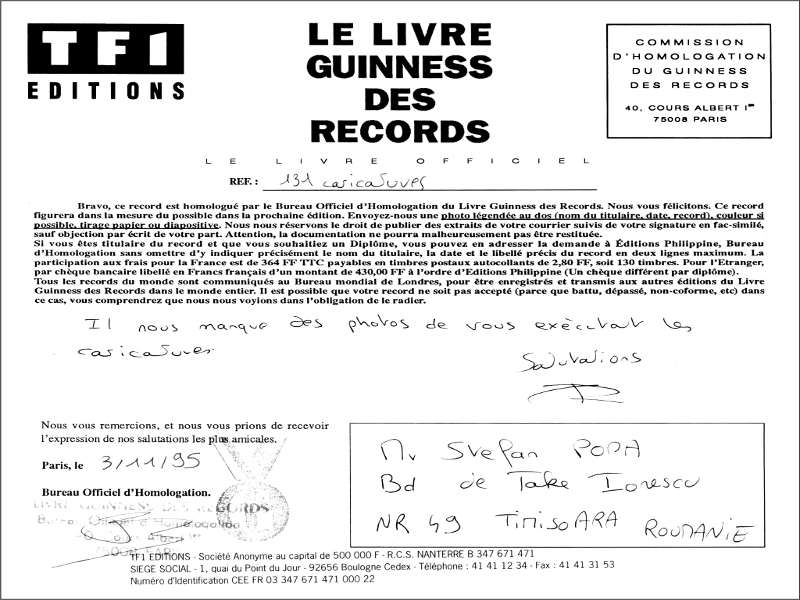 TF1
EDITIONS
LE LIVRE
GUINNESS
DES
RECORDS
COMMISSION
D'HOMOLOGATION
DU GUINNESS
DES RECORDS
40, COURS ALBERT Iᵉʳ
75008 PARIS
LE LIVRE OFFICIEL
REF. : 131 caricatures
Bravo, ce record est homologué par le Bureau Officiel d'Homologation du Livre Guinness des Records. Nous vous félicitons. Ce record
figurera dans la mesure du possible dans la prochaine édition. Envoyez-nous une photo légendée au dos (nom du titulaire, date, record), couleur si
possible, tirage papier ou diapositive. Nous nous réservons le droit de publier des extraits de votre courrier suivis de votre signature en fac-similé,
sauf objection par écrit de votre part. Attention, la documentation ne pourra malheureusement pas être restituée.
Si vous êtes titulaire du record et que vous souhaitiez un Diplôme, vous pouvez en adresser la demande à Éditions Philippine, Bureau
d'Homologation sans omettre d'y indiquer précisément le nom du titulaire, la date et le libellé précis du record en deux lignes maximum. La
participation aux frais pour la France est de 364 FF TTC payables en timbres postaux autocollants de 2,80 FF, soit 130 timbres. Pour l'Etranger,
par chèque bancaire libellé en Francs français d'un montant de 430,00 FF à l'ordre d'Editions Philippine (Un chèque différent par diplôme).
Tous les records du monde sont communiqués au Bureau mondial de Londres, pour être enregistrés et transmis aux autres éditions du Livre
Guinness des Records dans le monde entier. Il est possible que votre record ne soit pas accepté (parce que battu, dépassé, non-coforme, etc) dans
ce cas, vous comprendrez que nous nous voyions dans l'obligation de le radier.
Il nous manque des photos de vous exécutant les
caricatures
Salutations
Nous vous remercions, et nous vous prions de recevoir
l'expression de nos salutations les plus amicales.
Paris, le 3/11/95
Bureau Officiel d'Homologation.
LIVRE GUINNESS DES RECORDS
Bureau Officiel d'Homologation
Albert
75008 PAR
Mr Stefan POPA
Bd de Take Ionescu
NR 49 TIMISOARA ROUMANIE
TF1 EDITIONS - Société Anonyme au capital de 500 000 F - R.C.S. NANTERRE B 347 671 471
SIEGE SOCIAL - 1, quai du Point du Jour - 92656 Boulogne Cedex - Téléphone : 41 41 12 34 - Fax : 41 41 31 53
Numéro d'Identification CEE FR 03 347 671 471 000 22